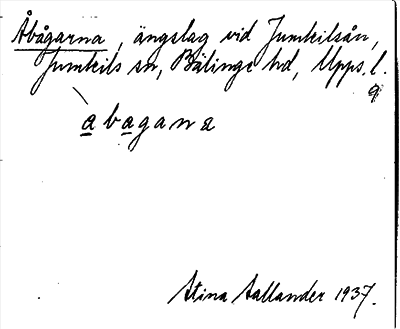 Åbågarna, ängslag vid Jumkilsån,
Jumkils sn, Bälinge hd, Upps. l.
9
abagana
Stina Sallander 1937.